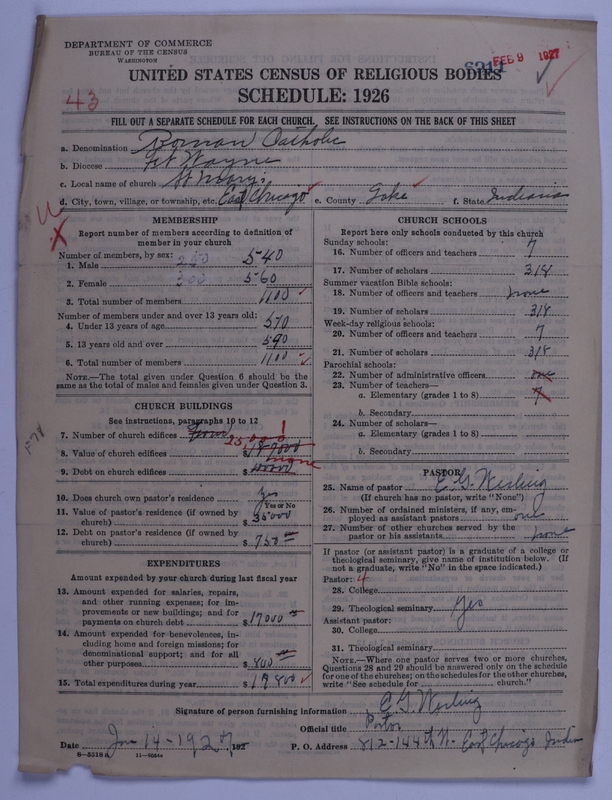 DEPARTMENT OF COMMERCE
BUREAU OF THE CENSUS
WASHINGTON
FEB 9 1927
UNITED STATES CENSUS OF RELIGIOUS BODIES
43
SCHEDULE: 1926
FILL OUT A SEPARATE SCHEDULE FOR EACH CHURCH. SEE INSTRUCTIONS ON THE BACK OF THIS SHEET
a. Denomination Roman Catholic
b. Diocese Ft Wayne
c. Local name of church St Mary's
d. City, town, village, or township, etc. East Chicago e. County Lake f. State Indiana
MEMBERSHIP
Report number of members according to definition of
member in your church
Number of members, by sex:
1. Male 250 540
2. Female 300 560
3. Total number of members 1100
Number of members under and over 13 years old:
4. Under 13 years of age 570
5. 13 years old and over 590
6. Total number of members 1100
NOTE.—The total given under Question 6 should be the
same as the total of males and females given under Question 3.
CHURCH BUILDINGS
See instructions, paragraphs 10 to 12
7. Number of church edifices 1
8. Value of church edifices $
9. Debt on church edifices $ none
10. Does church own pastor's residence Yes
Yes or No
11. Value of pastor's residence (if owned by
church) $ 35000
12. Debt on pastor's residence (if owned by
church) $ 750
EXPENDITURES
Amount expended by your church during last fiscal year
13. Amount expended for salaries, repairs,
and other running expenses; for im-
provements or new buildings; and for
payments on church debt $ 17000
14. Amount expended for benevolences, in-
cluding home and foreign missions; for
denominational support; and for all
other purposes $ 800
15. Total expenditures during year $ 17800
CHURCH SCHOOLS
Report here only schools conducted by this church
Sunday schools:
16. Number of officers and teachers 7
17. Number of scholars 318
Summer vacation Bible schools:
18. Number of officers and teachers none
19. Number of scholars 318
Week-day religious schools:
20. Number of officers and teachers 7
21. Number of scholars 318
Parochial schools:
22. Number of administrative officers one
23. Number of teachers—
a. Elementary (grades 1 to 8) 7
b. Secondary
24. Number of scholars—
a. Elementary (grades 1 to 8)
b. Secondary
PASTOR
25. Name of pastor E. G. Werling
(If church has no pastor, write "None")
26. Number of ordained ministers, if any, em-
ployed as assistant pastors one
27. Number of other churches served by the
pastor or his assistants none
If pastor (or assistant pastor) is a graduate of a college or
theological seminary, give name of institution below. (If
not a graduate, write "No" in the space indicated.)
Pastor: 4
28. College
29. Theological seminary Yes
Assistant pastor:
30. College
31. Theological seminary
NOTE.—Where one pastor serves two or more churches,
Questions 28 and 29 should be answered only on the schedule
for one of the churches; on the schedules for the other churches,
write "See schedule for church."
Signature of person furnishing information E G Werling
Official title Pastor
Date Jan 14-1927, 192 P. O. Address 812-144th St. East Chicago Indiana
8—5518a 11—9064a